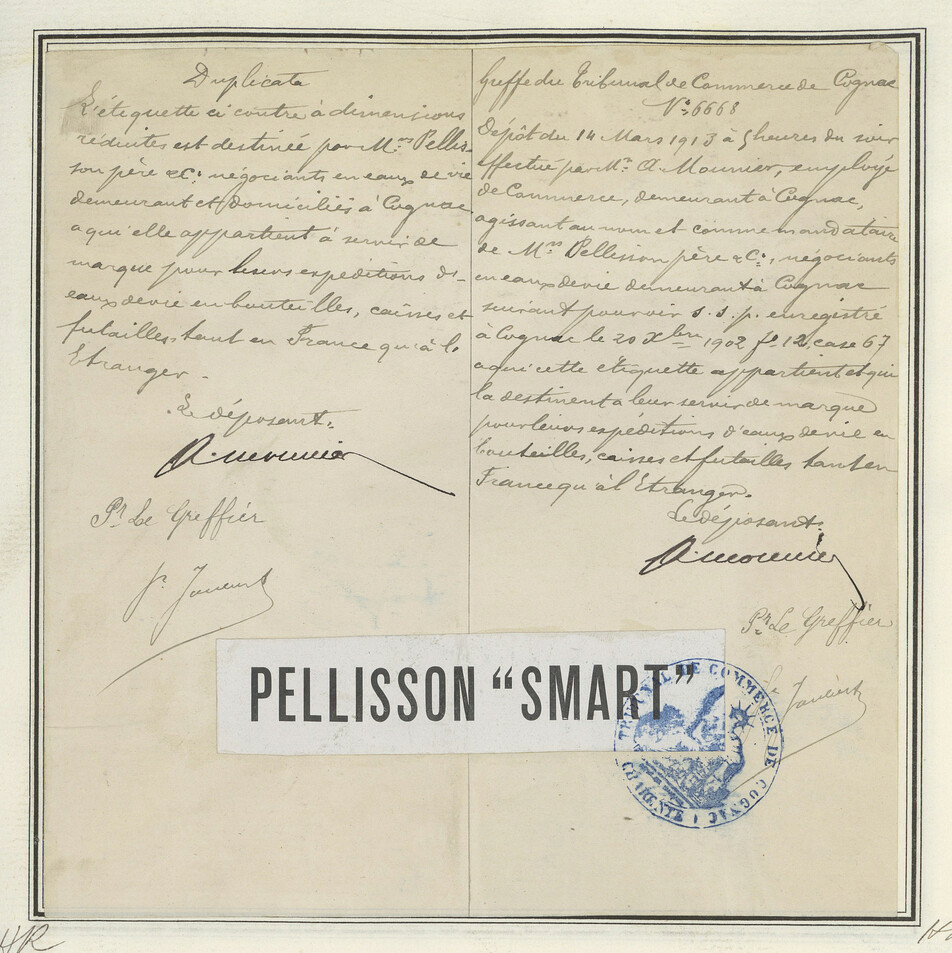 Duplicata
L'étiquette ci contre à dimensions
réduites est destinée par M.rs Pellis-
son père & C.ie négociants en eaux de vie
demeurant et domiciliés à Cognac
a qu'elle appartient à servir de
marque pour leurs expéditions d'-
eaux de vie en bouteilles, caisses et
futailles, tant en France qu'à l'
Etranger.
Le déposant,
A. Mounier
Pr Le Greffier
Greffe du Tribunal de Commerce de Cognac
No. 6668
Dépôt du 14 Mars 1913 à 5 heures du soir
effectué par Mr. A Mounier, employé
de Commerce, demeurant à Cognac,
agissant au nom et comme mandataire
de M.rs Pellisson père & C.ie, négociants
en eaux de vie demeurant à Cognac
suivant pouvoir s.s.p. enregistré
à Cognac le 20 Xbre 1902 fo 12, case 67
a qui cette étiquette appartient et qui
la destinent a leur servir de marque
pour leurs expéditions d'eaux de vie en
bouteilles, caisses et futailles tant en
France qu'à l'Etranger.
Le déposant,
A. Mounier
Pr Le Greffier
PELLISSON “SMART”
TRIBUNAL DE COMMERCE DE COGNAC (CHARENTE)
HR